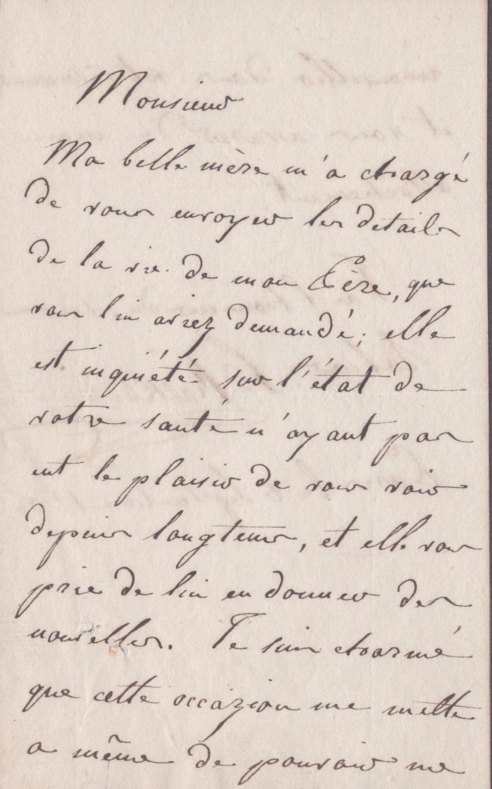 Monsieur
Ma belle mère m'a chargé
de vous envoyer les details
de la vie de mon Père, que
vous lui aviez demandé; elle
est inquiété sur l'état de
votre santé n'ayant pas
eut le plaisir de vous voir
depuis longtems, et elle vous
prie de lui en donner des
nouvelles. Je suis charmé
que cette occazion me mette
a même de pouvoir me